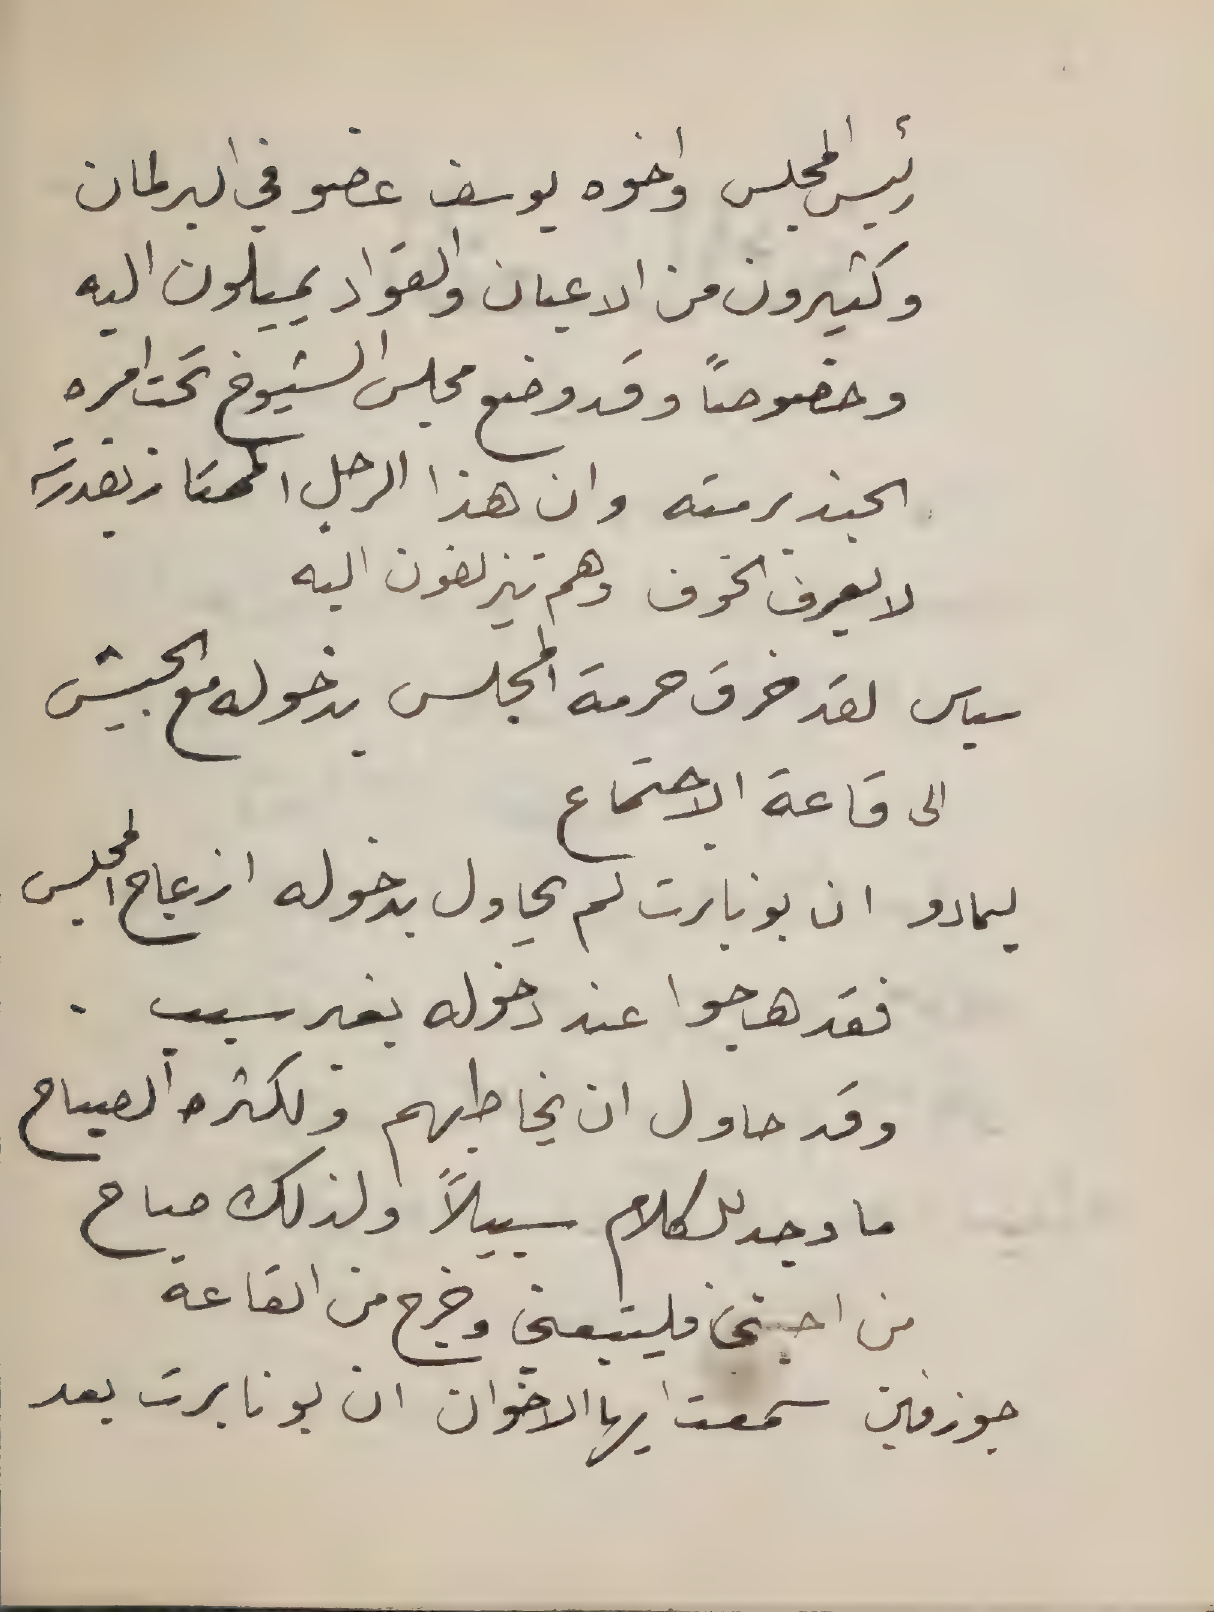 رئيس المجلس واخوه يوسف عضو في البرلمان
وكثيرون من الاعيان والقواد يميلون اليه
وخصوصاً وقد وضع مجلس الشيوخ تحت امره
الجند برمته وان هذا الرجل الممتاز بقدرته
لا يعرف الخوف وهم يتزلفون اليه
سياس لقد خرق حرمة المجلس بدخوله مع الجيش
الى قاعة الاجتماع
ليمادو ان بونابرت لم يحاول بدخوله ازعاج المجلس
فقد هاجوا عند دخوله بغير سبب .
وقد حاول ان يخاطبهم ولكثرة الصياح
ما وجد للكلام سبيلاً ولذلك صاح
من احبني فليتبعني وخرج من القاعة
جوزفين سمعت ايها الاخوان ان بونابرت بعد